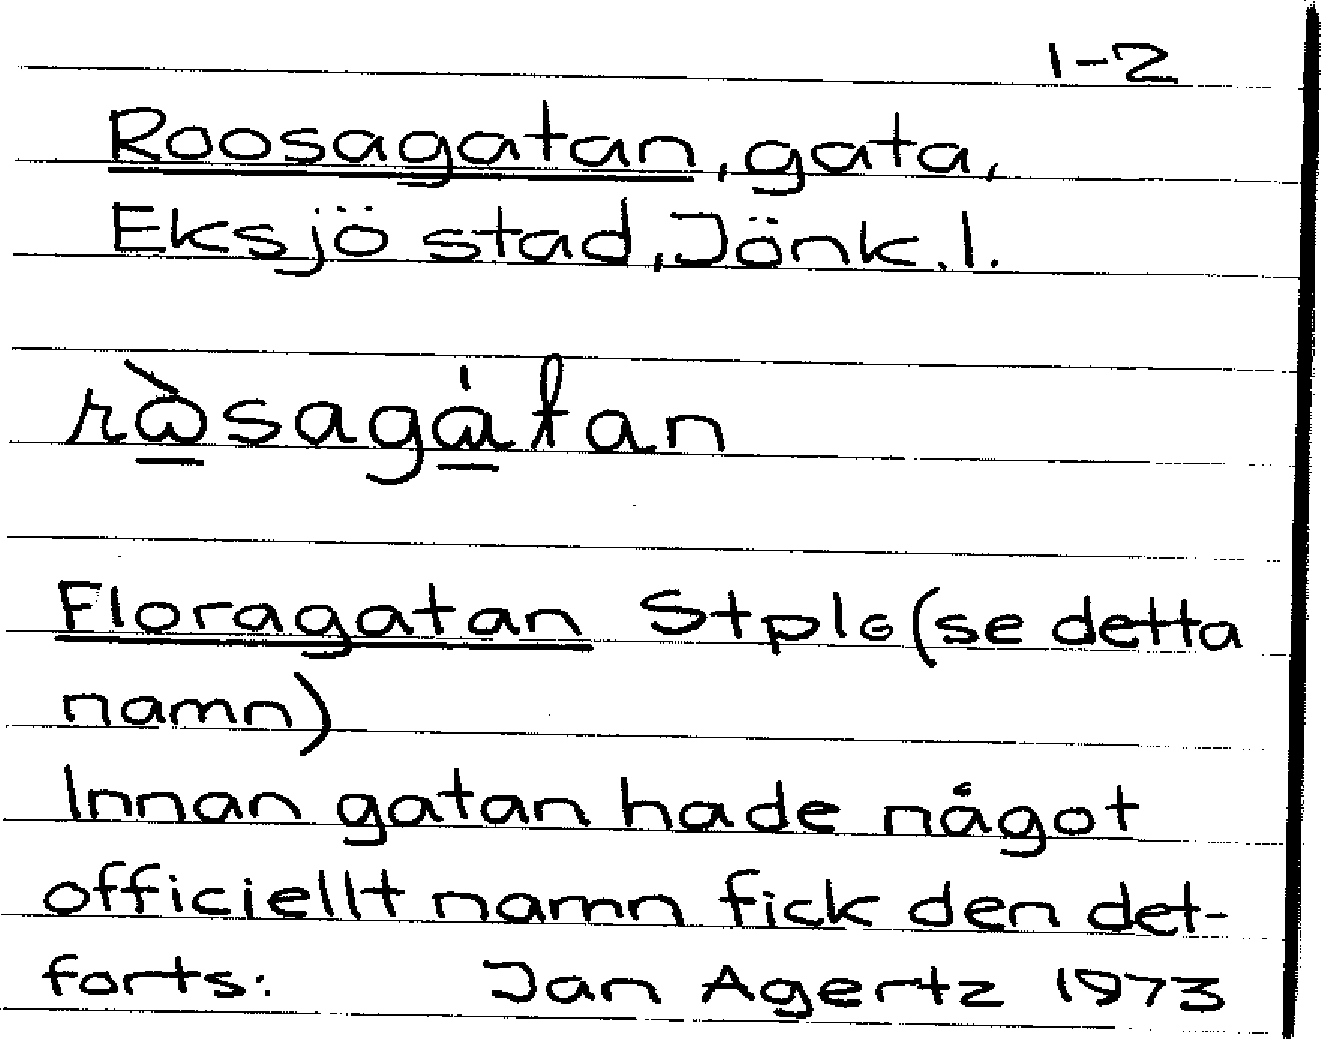 1-2
Roosagatan, gata,
Eksjö stad, Jönk. l.
rò̲sagá̲tan
Floragatan Stpl6 (se detta
namn)
Innan gatan hade något
officiellt namn fick den det-
forts: Jan Agertz 1973